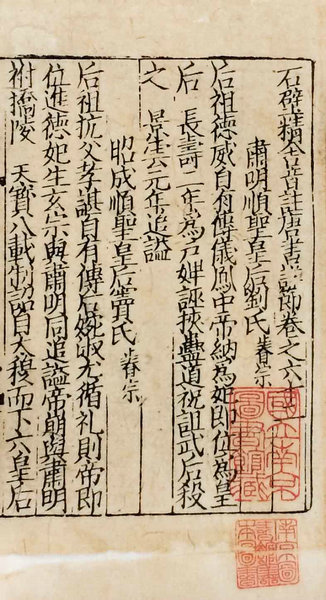 石壁精舍音註唐書詳節卷之六十
肅明順聖皇后劉氏 睿宗
后祖德威自有傳儀鳳中帝納為妃即位為皇
后 長壽二年為戶婢誣挾蠱道祝詛武后殺
之 景雲元年追謚
昭成順聖皇后竇氏 睿宗
后祖抗父孝諶自有傳后婉淑尤循礼則帝即
位進德妃生玄宗與肅明同追謚帝崩與肅明
祔橋陵 天寶八載制詔自太穆而下六皇后